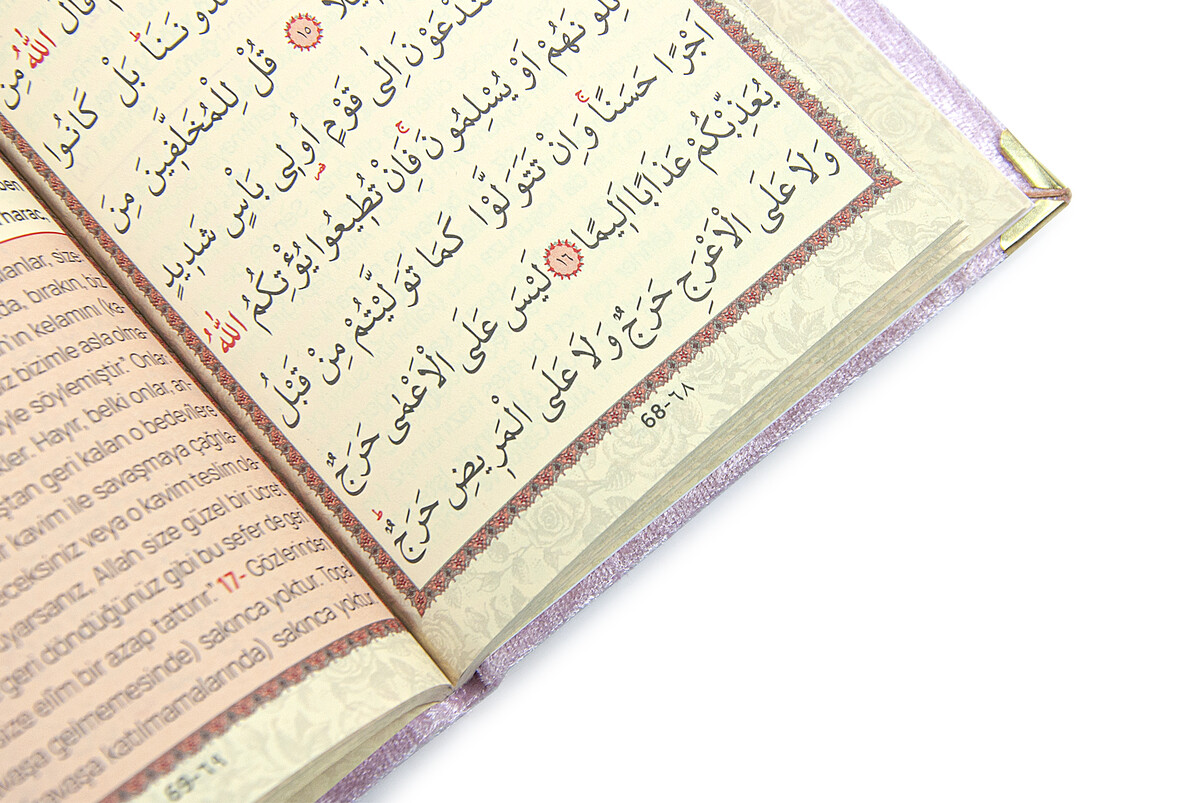 قَالَ اللّٰهُ مِنْ
دُونَنَاۜ بَلْ كَانُوا
﴿١٥﴾ قُلْ لِلْمُخَلَّفٖينَ مِنَ
تُدْعَوْنَ اِلٰى قَوْمٍ اُولٖى بَاْسٍ شَدٖيدٍ
اَوْ يُسْلِمُونَۚ فَاِنْ تُطٖيعُوا يُؤْتِكُمُ اللّٰهُ
اَجْرًا حَسَنًاۚ وَاِنْ تَتَوَلَّوْا كَمَا تَوَلَّيْتُمْ مِنْ قَبْلُ
يُعَذِّبْكُمْ عَذَابًا اَلٖيمًا ﴿١٦﴾ لَيْسَ عَلَى الْاَعْمٰى حَرَجٌ
وَلَا عَلَى الْاَعْرَجِ حَرَجٌ وَلَا عَلَى الْمَرٖيضِ حَرَجٌۜ
68-٦٨
harac,
size
da, bırakın, biz
kelamını (ka-
bizimle asla olma-
söylemiştir." Onlar,
Hayır, belki onlar, an-
geri kalan o bedevilere
kavim ile savaşmaya çağrıla-
veya o kavim teslim da-
Allah size güzel bir ücret
geri döndüğünüz gibi bu sefer de geri
size elîm bir azap tattırır." 17- Gözlerinden
gelmemesinde) sakınca yoktur. Topal
katılmamalarında) sakınca yoktur.
69-٦٩